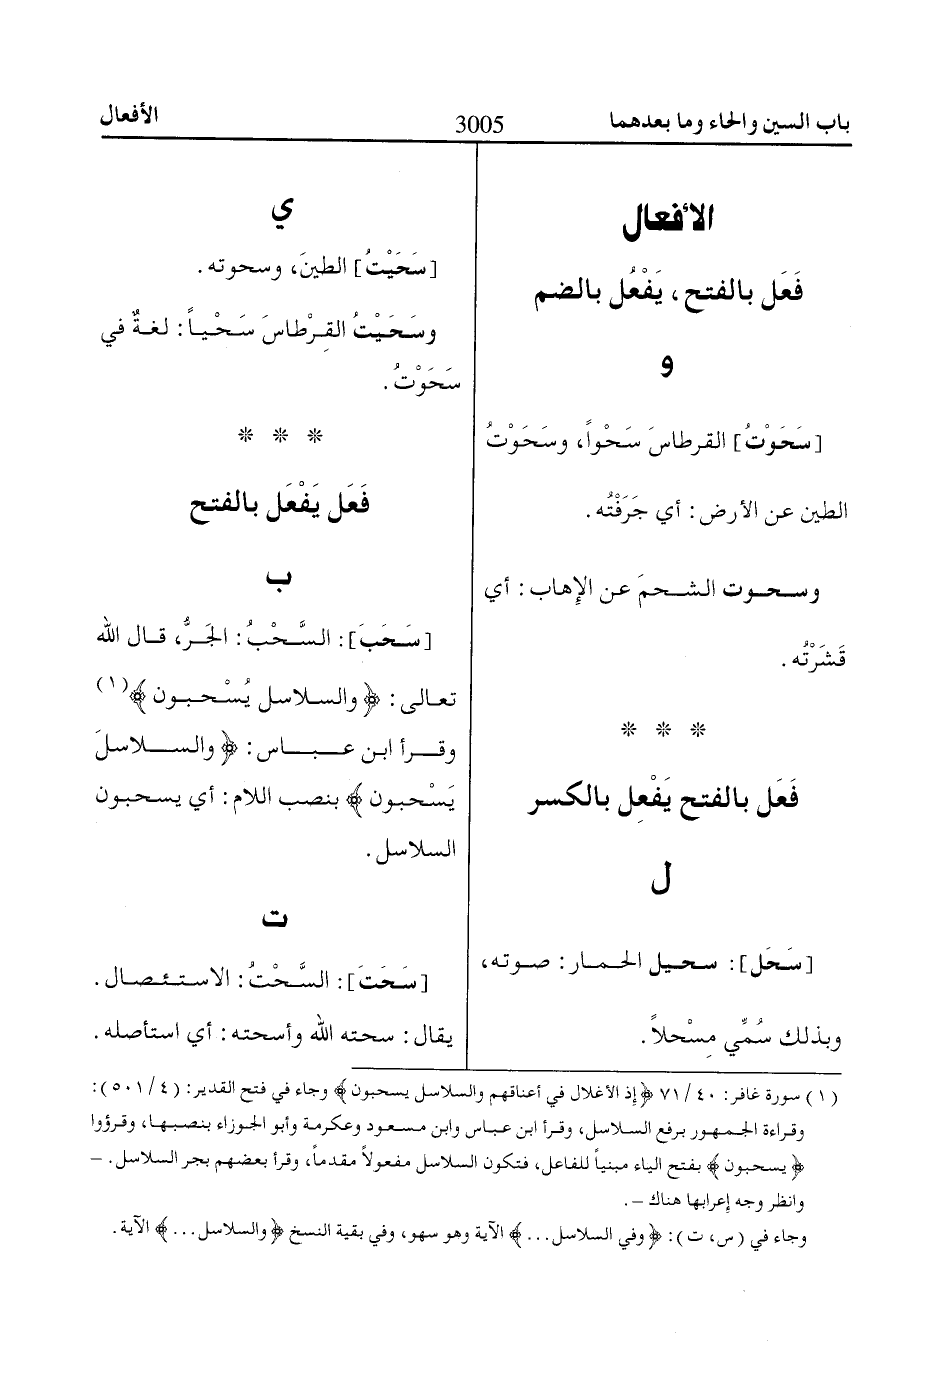 باب السين والحاء وما بعدهما
3005
الأفعال
الأفعال
فَعَل بالفتح، يَفْعُل بالضم
و
[سَحَوْتُ] القرطاسَ سَحْواً، وسَحَوْتُ
الطين عن الأرض: أي جَرَفْتُه.
وسحوت الشحمَ عن الإهاب: أي
قَشَرْتُه.
* * *
فَعَل بالفتح يَفْعِل بالكسر
ل
[سَحَل]: سحيل الحمار: صوته،
وبذلك سُمِّي مِسْحلاً.
ي
[سَحَيْتُ] الطينَ، وسحوته.
وسَحَيْتُ القِرْطاسَ سَحْياً: لغةٌ في
سَحَوْتُ.
* * *
فَعَل يَفْعَل بالفتح
ب
[سَحَبَ]: السَّحْبُ: الجَرُّ، قال الله
تعالى: ﴿والسلاسل يُسْحبون﴾(١)
وقرأ ابن عباس: ﴿والسلاسلَ
يَسْحبون﴾ بنصب اللام: أي يسحبون
السلاسل.
ت
[سَحَتَ]: السَّحْتُ: الاستئصال.
يقال: سحته الله وأسحته: أي استأصله.
(١) سورة غافر: ٤٠/ ٧١ ﴿إذ الأغلال في أعناقهم والسلاسل يسحبون﴾ وجاء في فتح القدير: (٤/ ٥٠١):
وقراءة الجمهور برفع السلاسل، وقرأ ابن عباس وابن مسعود وعكرمة وأبو الجوزاء بنصبها، وقرؤوا
﴿يسحبون﴾ بفتح الياء مبنياً للفاعل، فتكون السلاسل مفعولاً مقدماً، وقرأ بعضهم بجر السلاسل. –
وانظر وجه إعرابها هناك –.
وجاء في (س، ت): ﴿وفي السلاسل...﴾ الآية وهو سهو، وفي بقية النسخ ﴿والسلاسل...﴾ الآية.